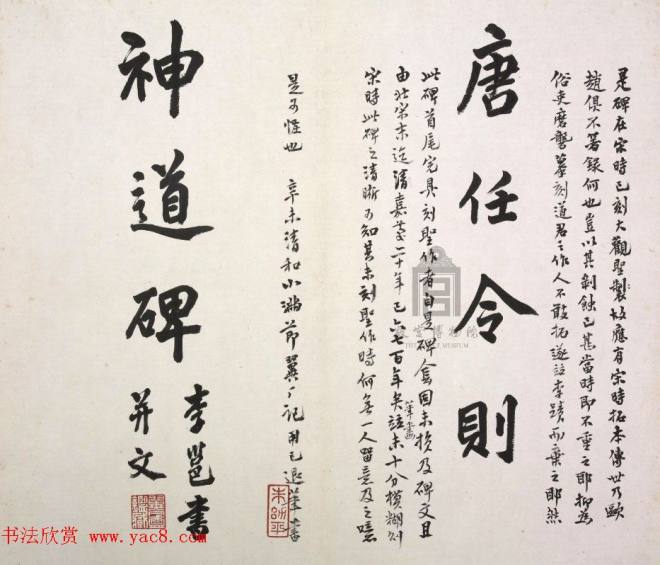 是碑在宋時已刻大觀聖製故應有宋時拓本傳世乃歐
趙俱不著錄何也豈以其剝蝕已甚當時即不重之耶抑為
俗吏磨礱摹刻道君之作人不敢拓遂並李蹟而棄之耶然
唐任令則
此碑首尾完具刻聖作者自是碑陰因未損及碑文且
由北宋末迄清嘉慶二十年已六七百年矣並未十分模糊則
筆畫
宋時此碑之清晰可知其未刻聖作時何無一人留意及之噫
是可怪也 辛未清和小滿節翼厂記用已退筆書
朱翼盦
神道碑
李邕書
并文
故宮博物院
THE PALACE MUSEUM
书法欣赏
www.yac8.com